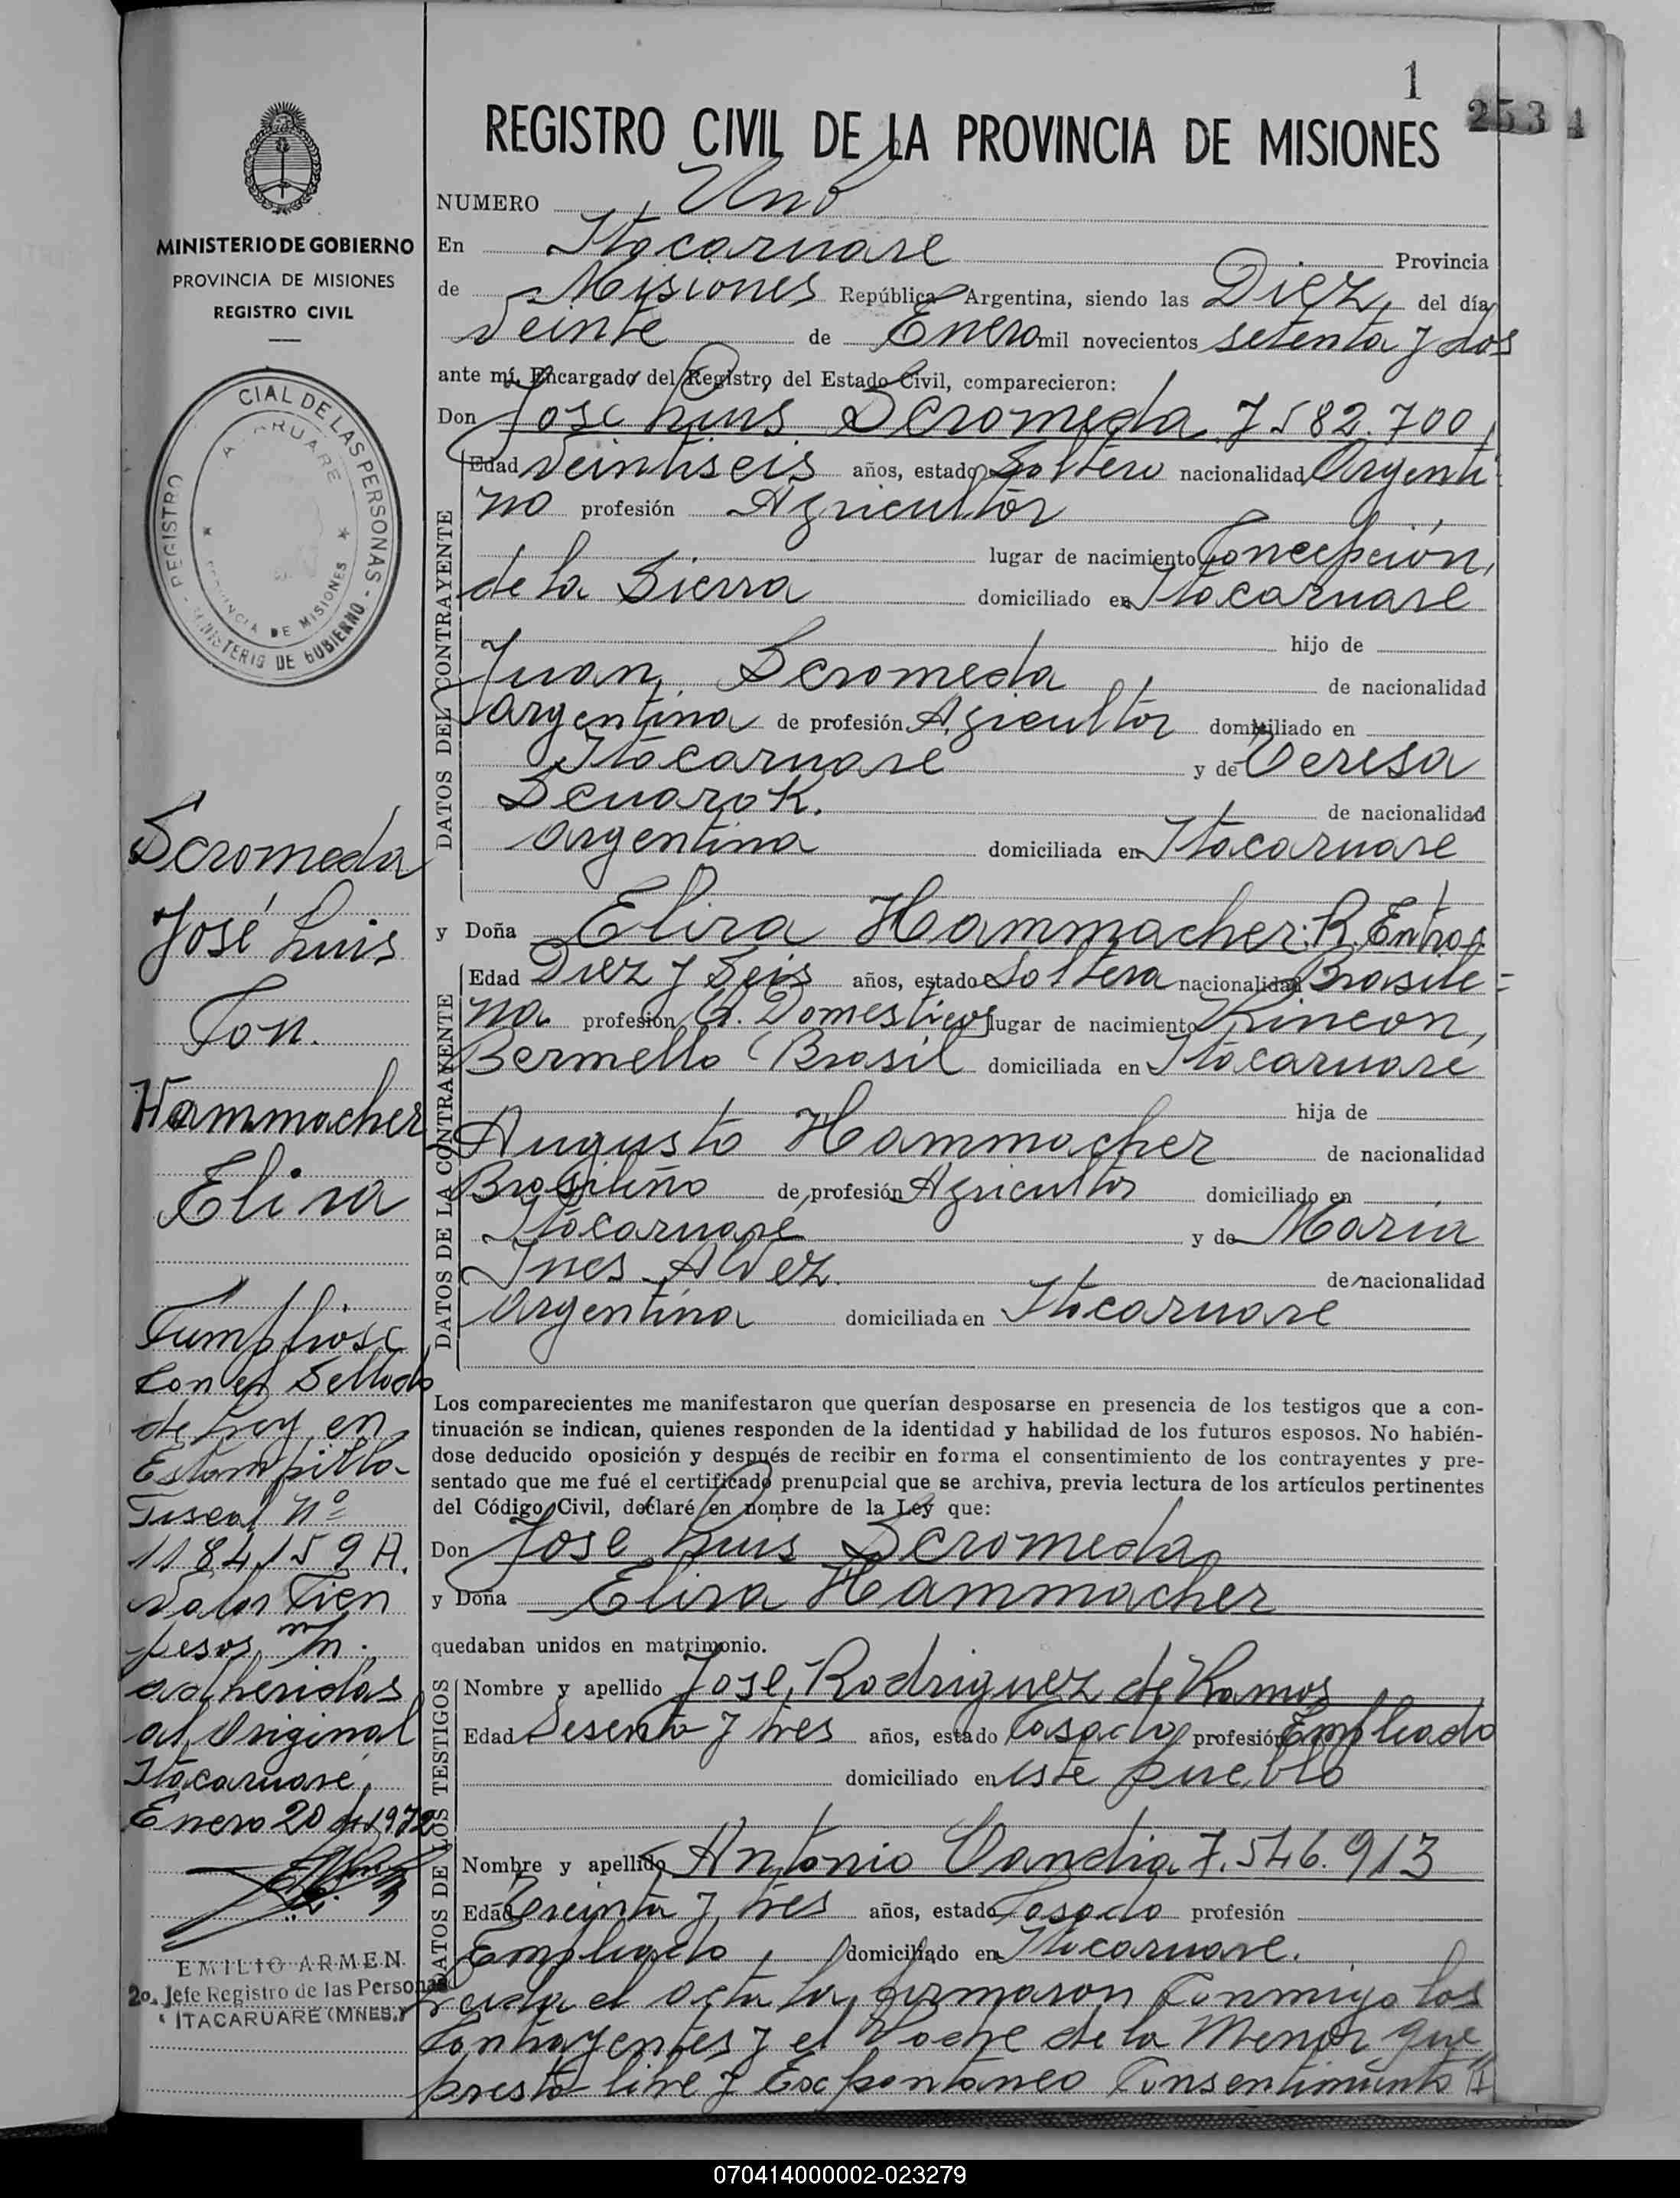 1
2534
REGISTRO CIVIL DE LA PROVINCIA DE MISIONES
NUMERO Uno
En Itacaruare Provincia
de Misiones República Argentina, siendo las Diez, del día
Veinte de Enero mil novecientos setenta y dos
ante mí, Encargado del Registro del Estado Civil, comparecieron:
Don Jose Luis Scromeda 7582.700
DATOS DEL CONTRAYENTE
Edad Veintiseis años, estado Soltero nacionalidad Argenti
no profesión Agricultor
lugar de nacimiento Concepción,
de la Sierra domiciliado en Itacaruare
hijo de
Juan Scromeda de nacionalidad
Argentina de profesión Agricultor domiciliado en
Itacaruare y de Teresa
Scuarok. de nacionalidad
Argentina domiciliada en Itacaruare
y Doña Elira Hammacher: R.
DATOS DE LA CONTRAYENTE
Edad Diez y Seis años, estado Soltera nacionalidad Brasile=
na profesión Q. Domesticos lugar de nacimiento Rincon,
Bermello (Brasil domiciliada en Itacaruaré
hija de
Augusto Hammacher de nacionalidad
Brasileño de profesión Agricultor domiciliado en
Itacaruaré y de Maria
Ines Alvez. de nacionalidad
Argentina domiciliada en Itacaruare
Los comparecientes me manifestaron que querían desposarse en presencia de los testigos que a con-
tinuación se indican, quienes responden de la identidad y habilidad de los futuros esposos. No habién-
dose deducido oposición y después de recibir en forma el consentimiento de los contrayentes y pre-
sentado que me fué el certificado prenupcial que se archiva, previa lectura de los artículos pertinentes
del Código Civil, declaré en nombre de la Ley que:
Don Jose Luis Scromeda
y Doña Elira Hammacher
quedaban unidos en matrimonio.
DATOS DE LOS TESTIGOS
Nombre y apellido Jose Rodriguez de Ramos
Edad Sesenta y tres años, estado Casado profesión Empleado
domiciliado en este pueblo
Nombre y apellido Antonio Candia 7.546.913
Edad Treinta y tres años, estado Casado profesión
Empleado, domiciliado en Itacaruare.
Leida el acta la firmaron Conmigo los
Contrayentes y el Padre de la Menor que
presta libre y Expontaneo Consentimiento
MINISTERIO DE GOBIERNO
PROVINCIA DE MISIONES
REGISTRO CIVIL
REGISTRO CIAL DE LAS PERSONAS - MINISTERIO DE GOBIERNO -
ARUARE
PROVINCIA DE MISIONES
Scromeda
José Luis
Con.
Hammacher
Elira
Cumpliose
Con el Sellado
de Ley en
Estampilla
Fiscal Nº
1184159 A.
Valor Cien
pesos m/n.
adheridas
al Original
Itacaruare,
Enero 20 de 1972
EMILIO ARMEN
2o. Jefe Registro de las Personas
ITACARUARE (MNES.)
070414000002-023279